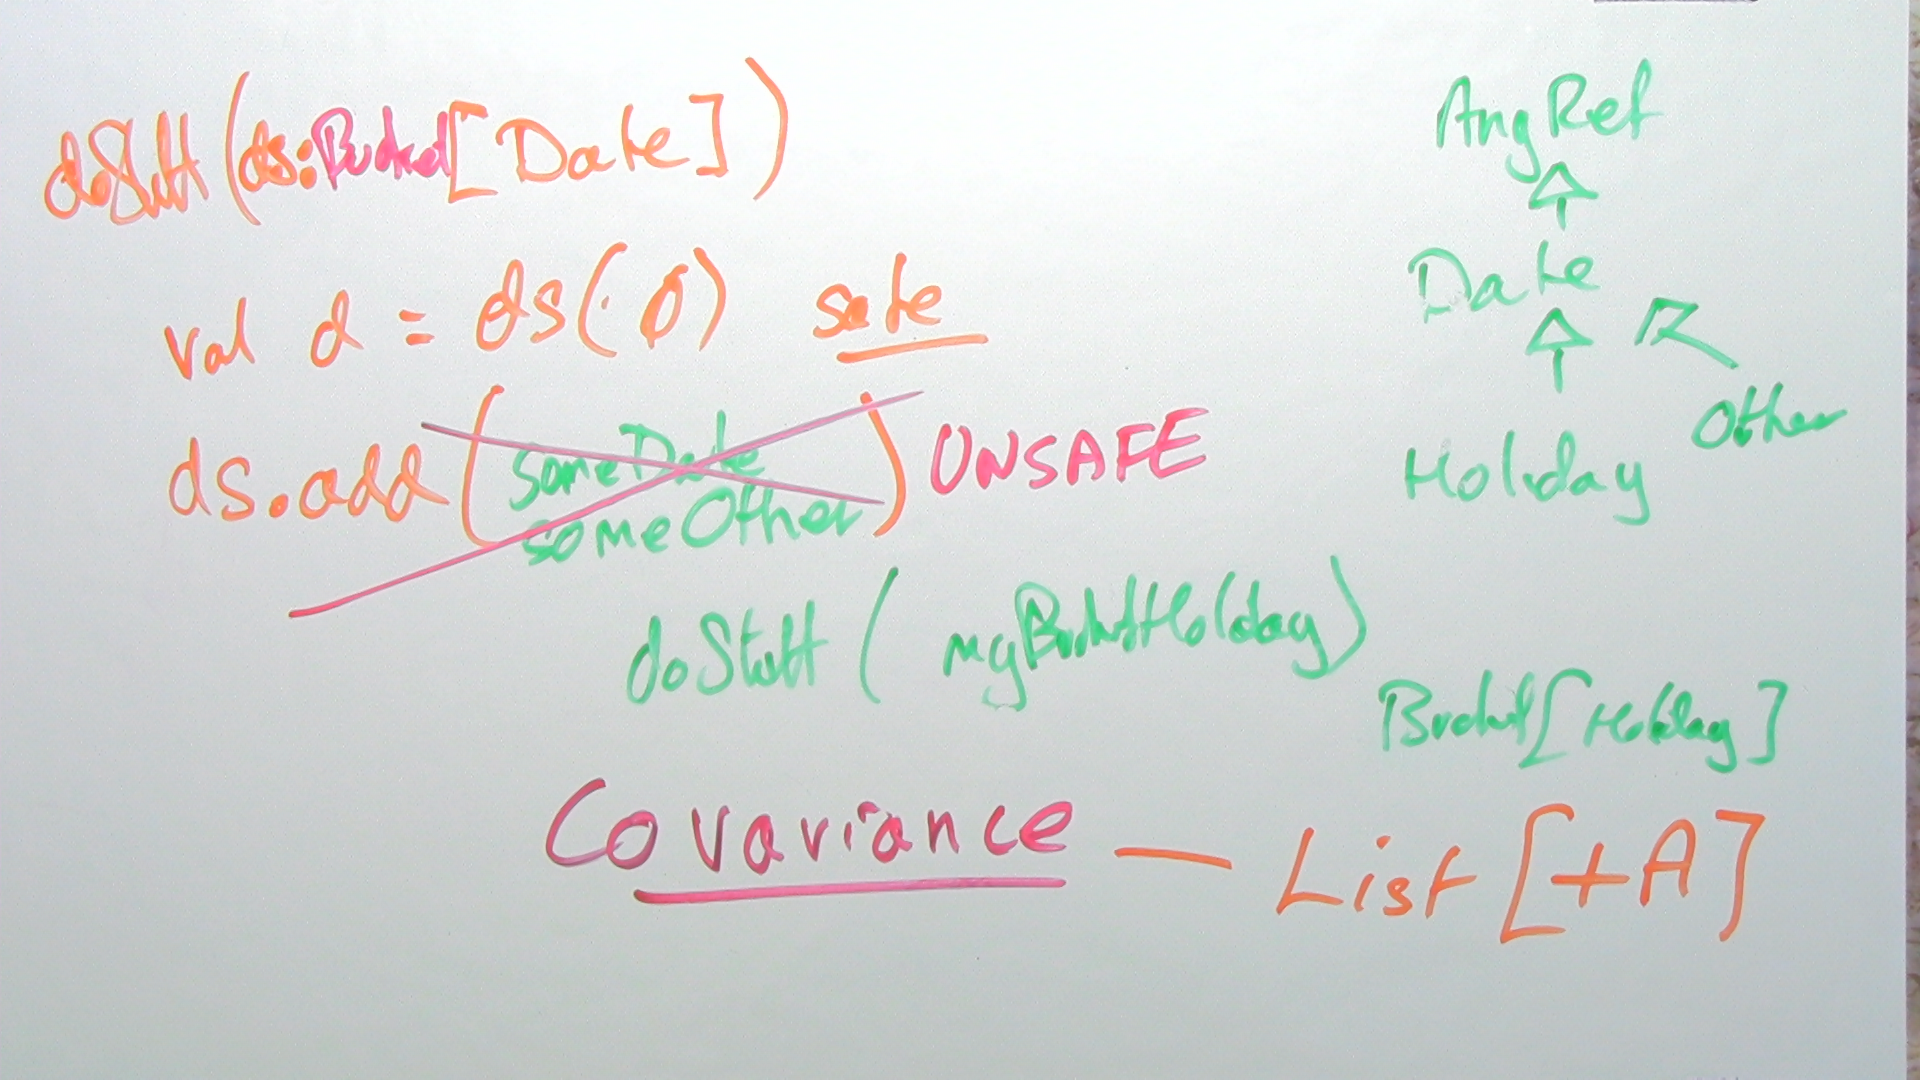 doStuff(ds:Bucket[Date])
val d = ds(0) safe
ds.add(someDate
someOther) UNSAFE
doStuff(myBucketHoliday)
Bucket[Holiday]
Covariance — List[+A]
AnyRef
Date
Other
Holiday